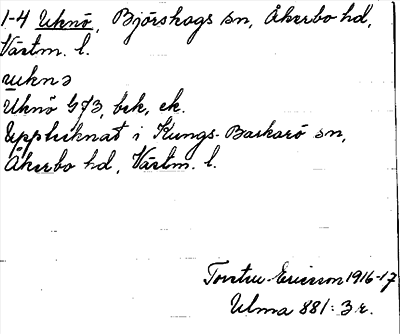 1-4 Uknö, Björskogs sn, Åkerbo hd,
Västm. l.
uknɔ
Uknö G/3, bek, ek.
Uppteknat i Kungs-Barkarö sn,
Åkerbo hd, Västm. l.
Torsten Ericsson 1916-17
Ulma 881:3 r.